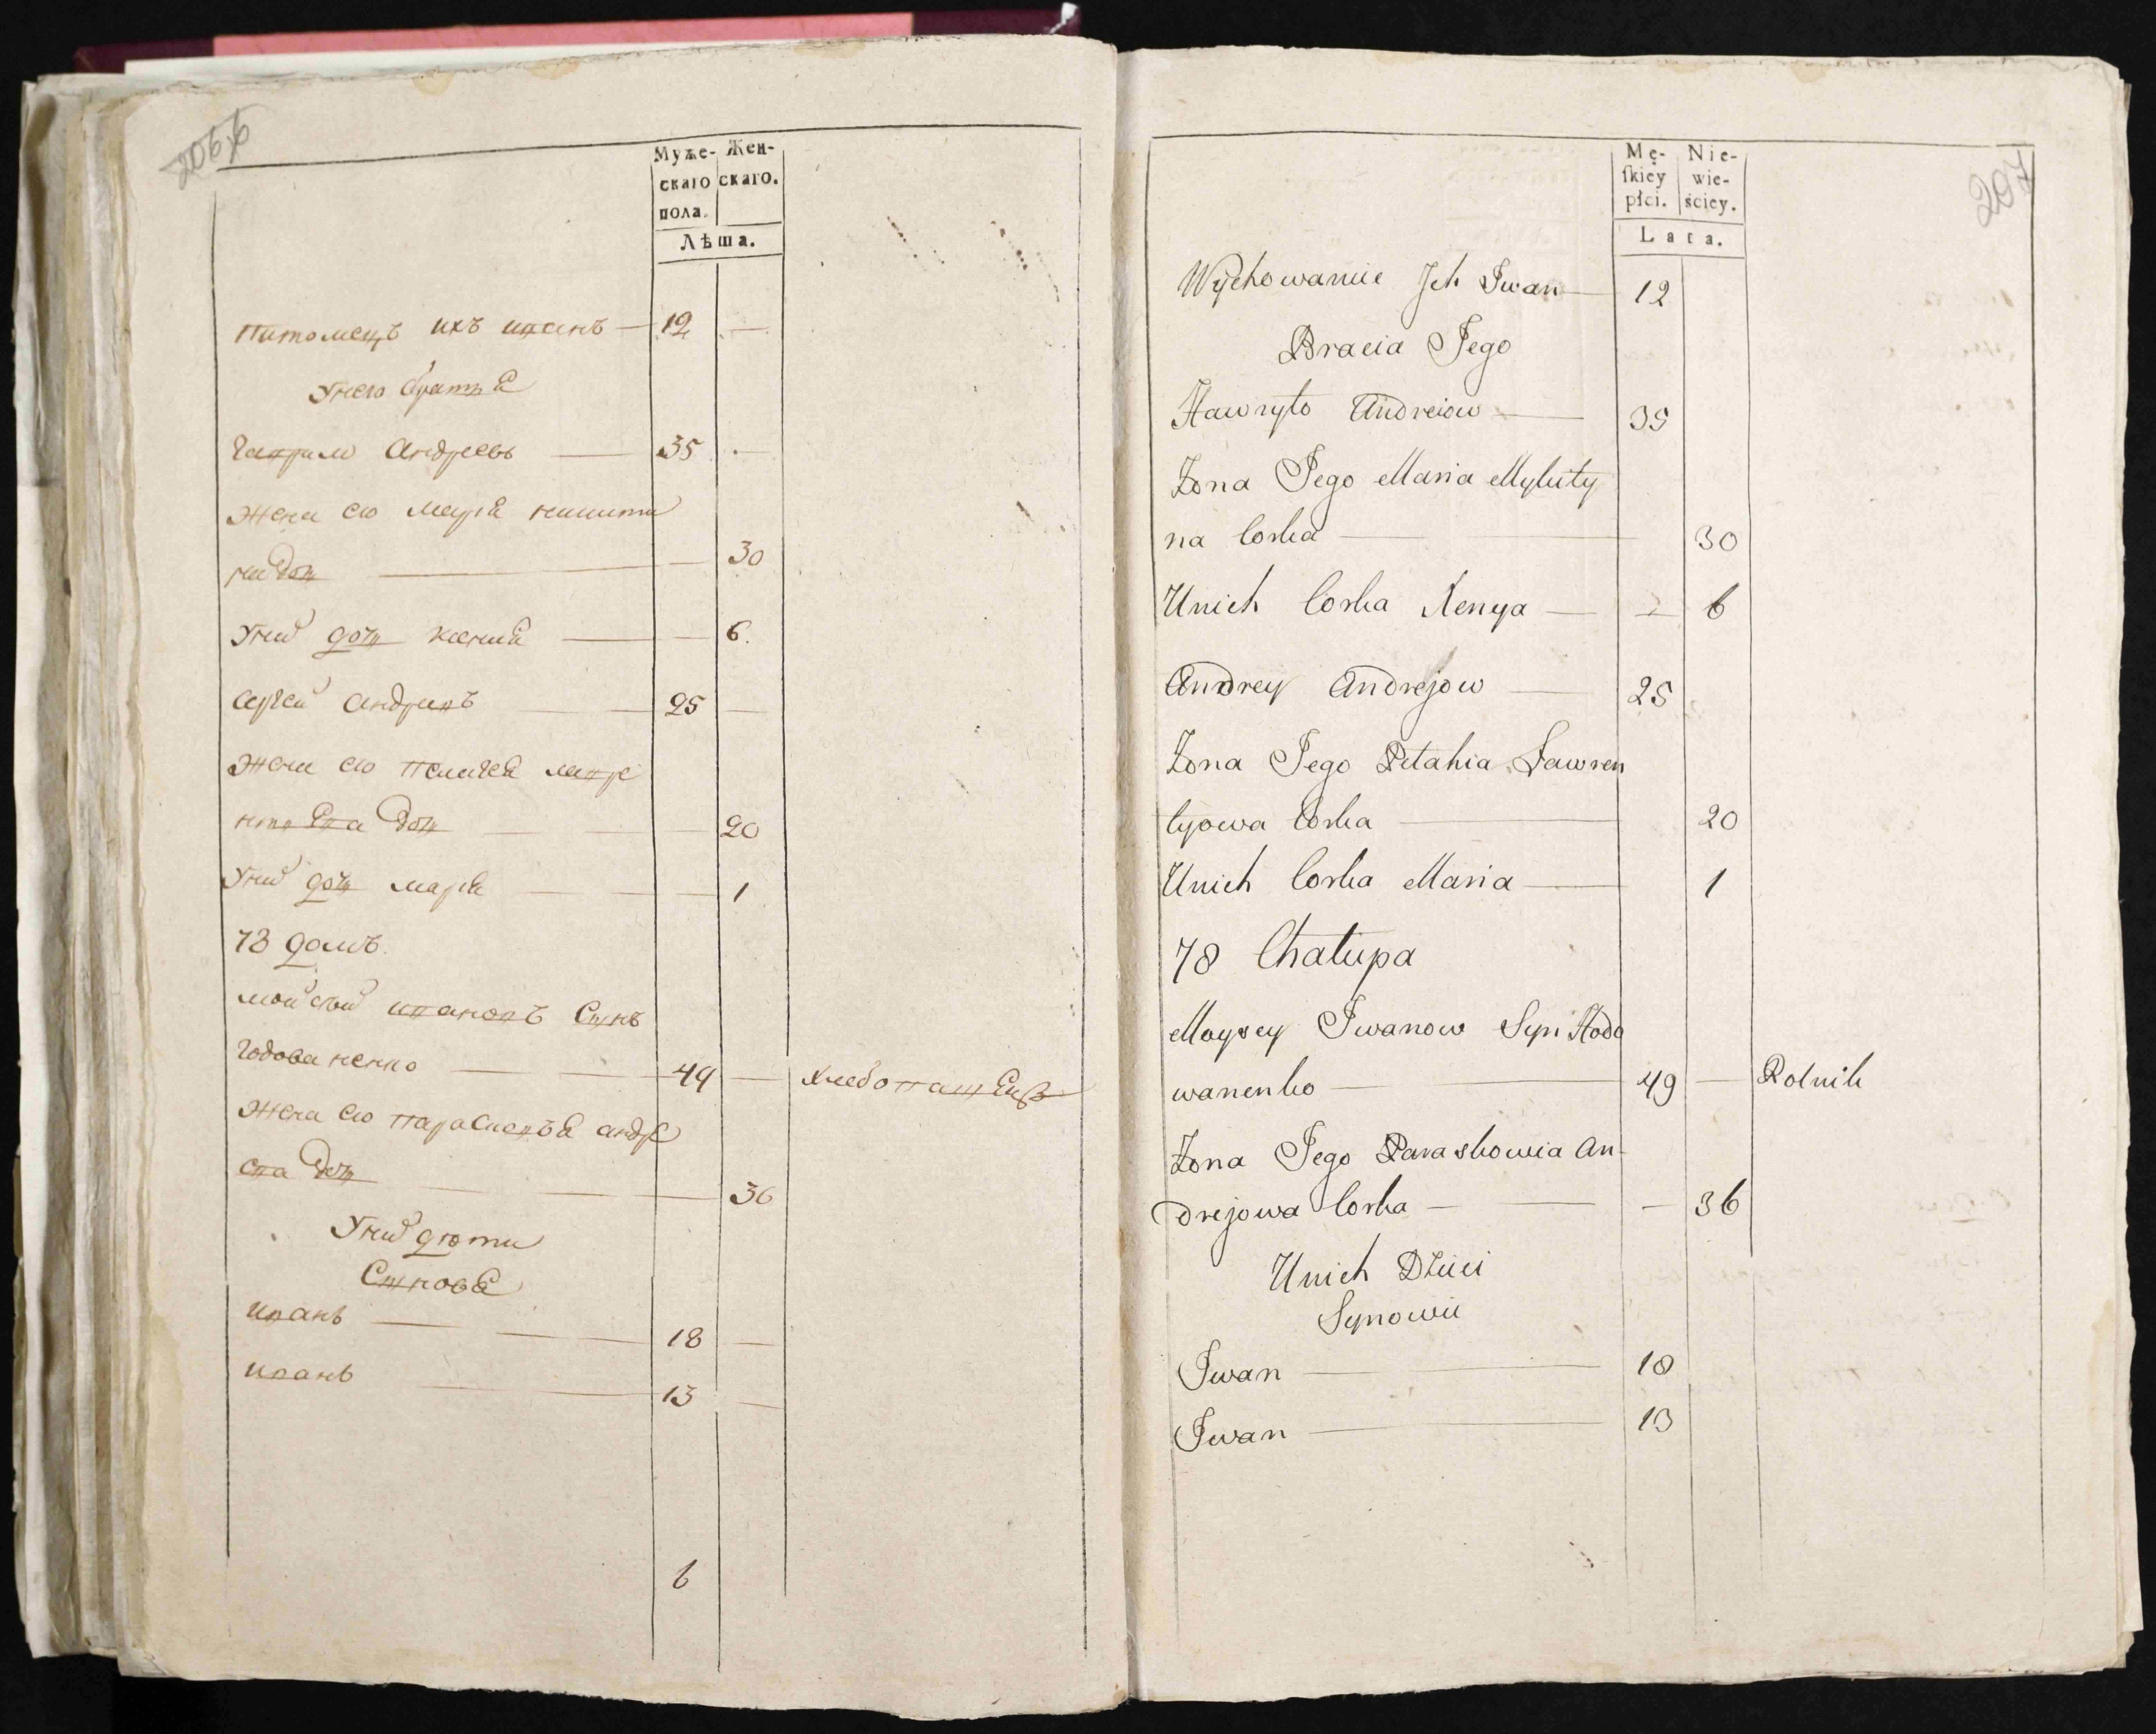 206 б
Муже- Жен-
скаго скаго.
пола.
Лѣта.
питомецъ ихъ иванъ — 12 —
Унего братья
Гаврило Андреевъ — 35 —
жена его марья
на доч — 30
Уних доч ксения — 6.
Сергей андреевъ — 25 —
жена его пелагея лавре
нтьева доч — 20
Уних доч марья — 1
78 домъ.
мойсей ивановъ Сынъ
Годованенко — 49 — хлебопашецъ
жена его парасковья андре
ева доч — 36
Уних дети
Сыновья
иванъ — 18 —
иванъ — 13 —
6
207
Mę- Nie-
ſkiey wie-
płci. ściey.
Lata.
Wychowanie Jch Iwan — 12
Bracia Jego
Hawryło Andreiow — 35
Żona Jego Maria Mykity
na Corka — 30
Unich Corka Xenya — 6
Andrey Andrejow — 25
Żona Jego Pelahia Ławren
tyowa Corka — 20
Unich Corka Maria — 1
78 Chałupa
Moysey Iwanow Syn Hodo
wanenko — 49 — Rolnik
Żona Jego Paraskowia An-
drejowa Corka — 36
Unich Dzieci
Synowie
Iwan — 18
Iwan — 13